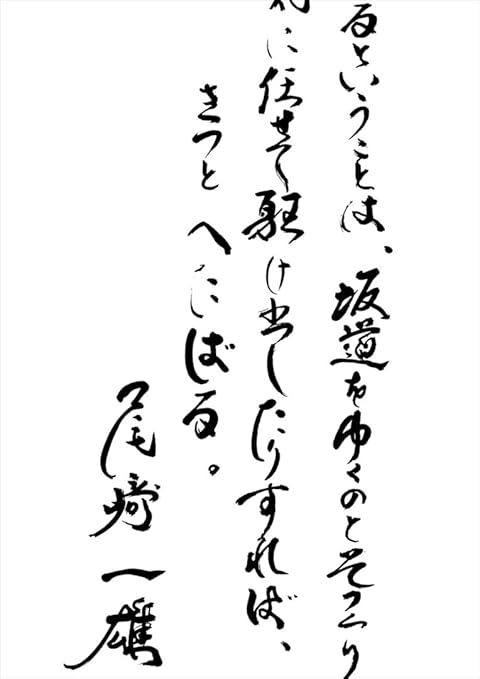 るということは、坂道をゆくのとそつくり
に任せて駆け出したりすれば、
きつと へたばる。
尾崎一雄